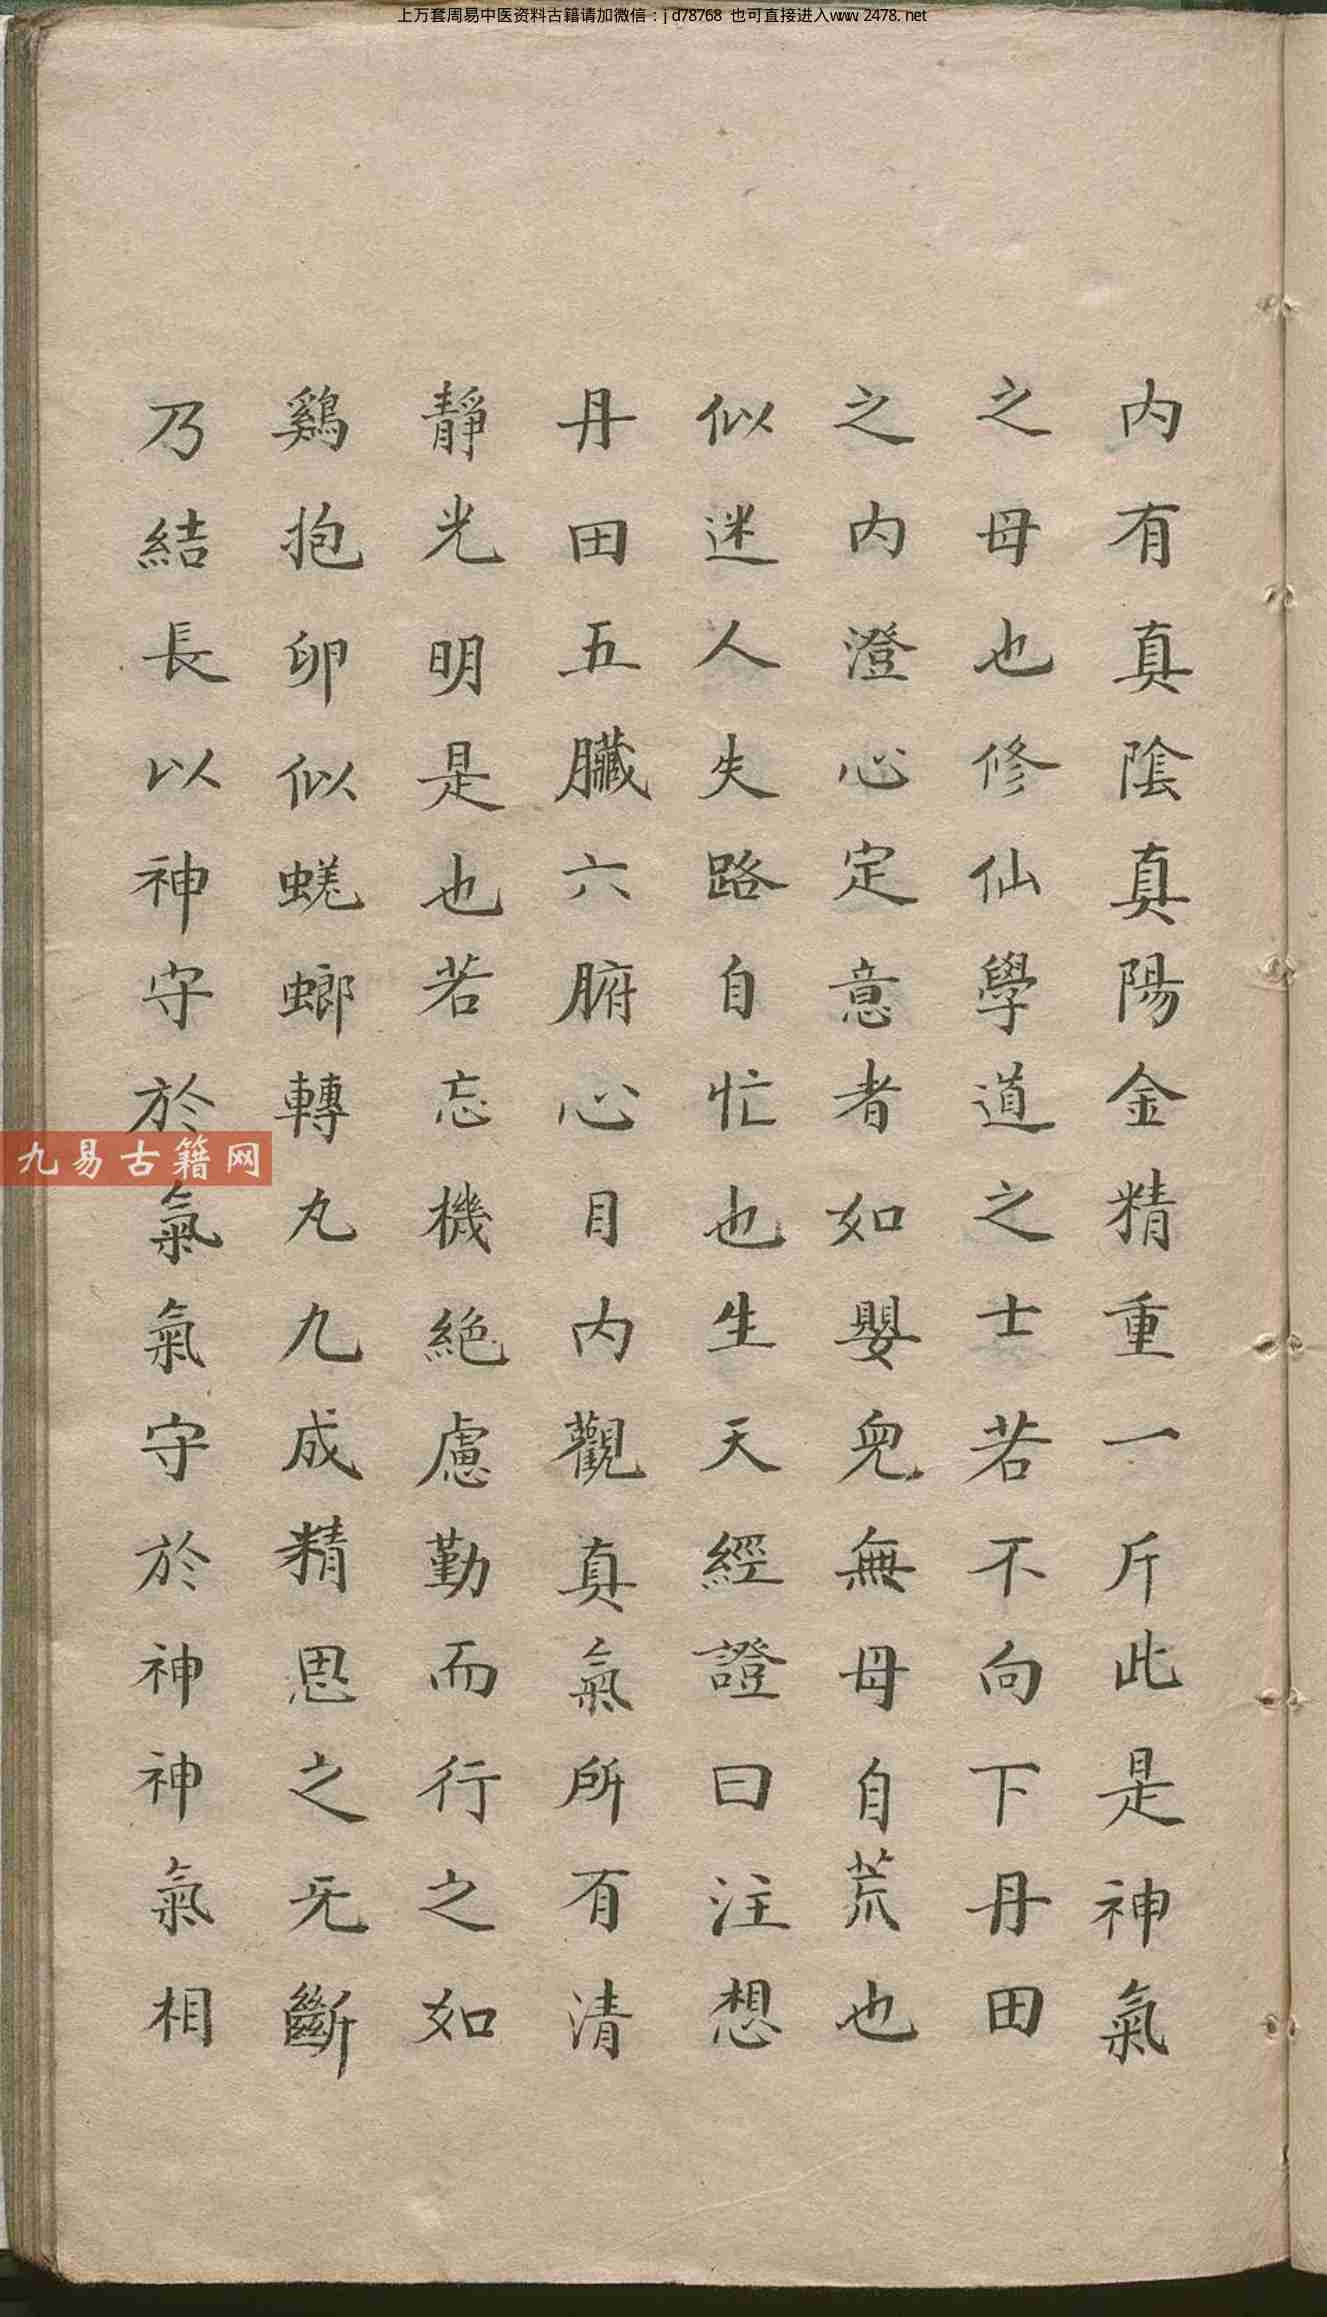 上万套周易中医资料古籍请加微信：jd78768 也可直接进入www.2478.net
内有真陰真陽金精重一斤此是神氣
之母也修仙學道之士若不向下丹田
之内澄心定意者如嬰兒無母自荒也
似迷人失路自忙也生天經證曰注想
丹田五臟六腑心目内觀真氣所有清
靜光明是也若忘機絕慮勤而行之如
鷄抱卵似蜣螂轉丸九成精思之无斷
乃結長以神守於氣氣守於神神氣相
九易古籍网